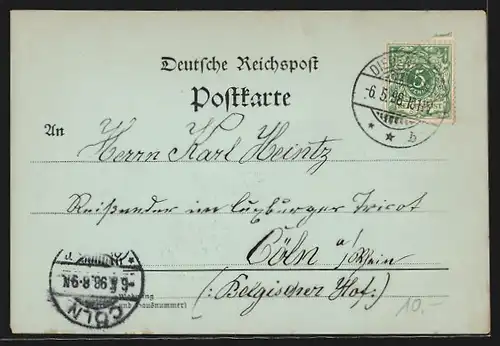 Deutsche Reichspost
Postkarte
An
5
-6.5.98.
* * b
Herrn Karl Heintz
Reisender im Luxburger Tricot
Cöln a/ Rhein
(: Belgischer Hof :)
-6.5.98. 8-9N.
CÖLN
Wohnung
und Hausnummer)
10.-